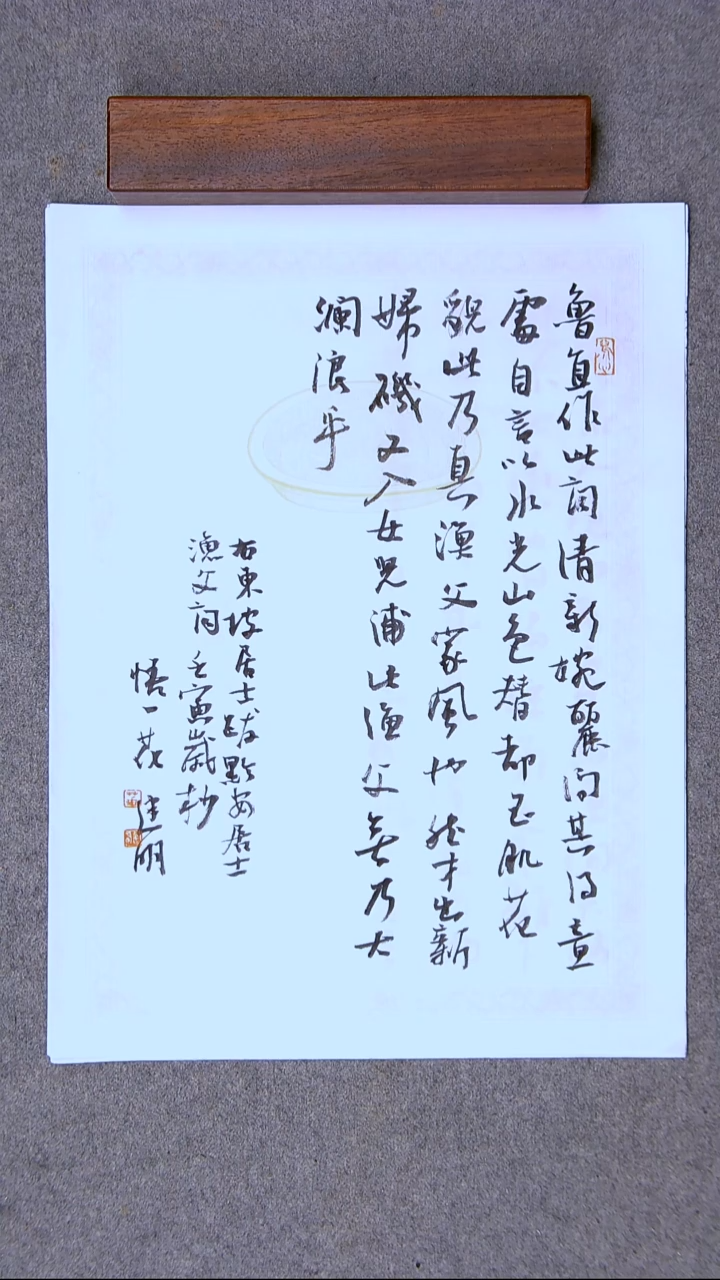 魯直作此詞清新婉麗問其得意
處自言以水光山色替却玉肌花
貌此乃真漁父家風也然才出新
婦磯又入女兒浦此漁父無乃大
瀾浪乎
右東坡居士跋黔安居士
漁父詞壬寅歲杪
悟一茂建明